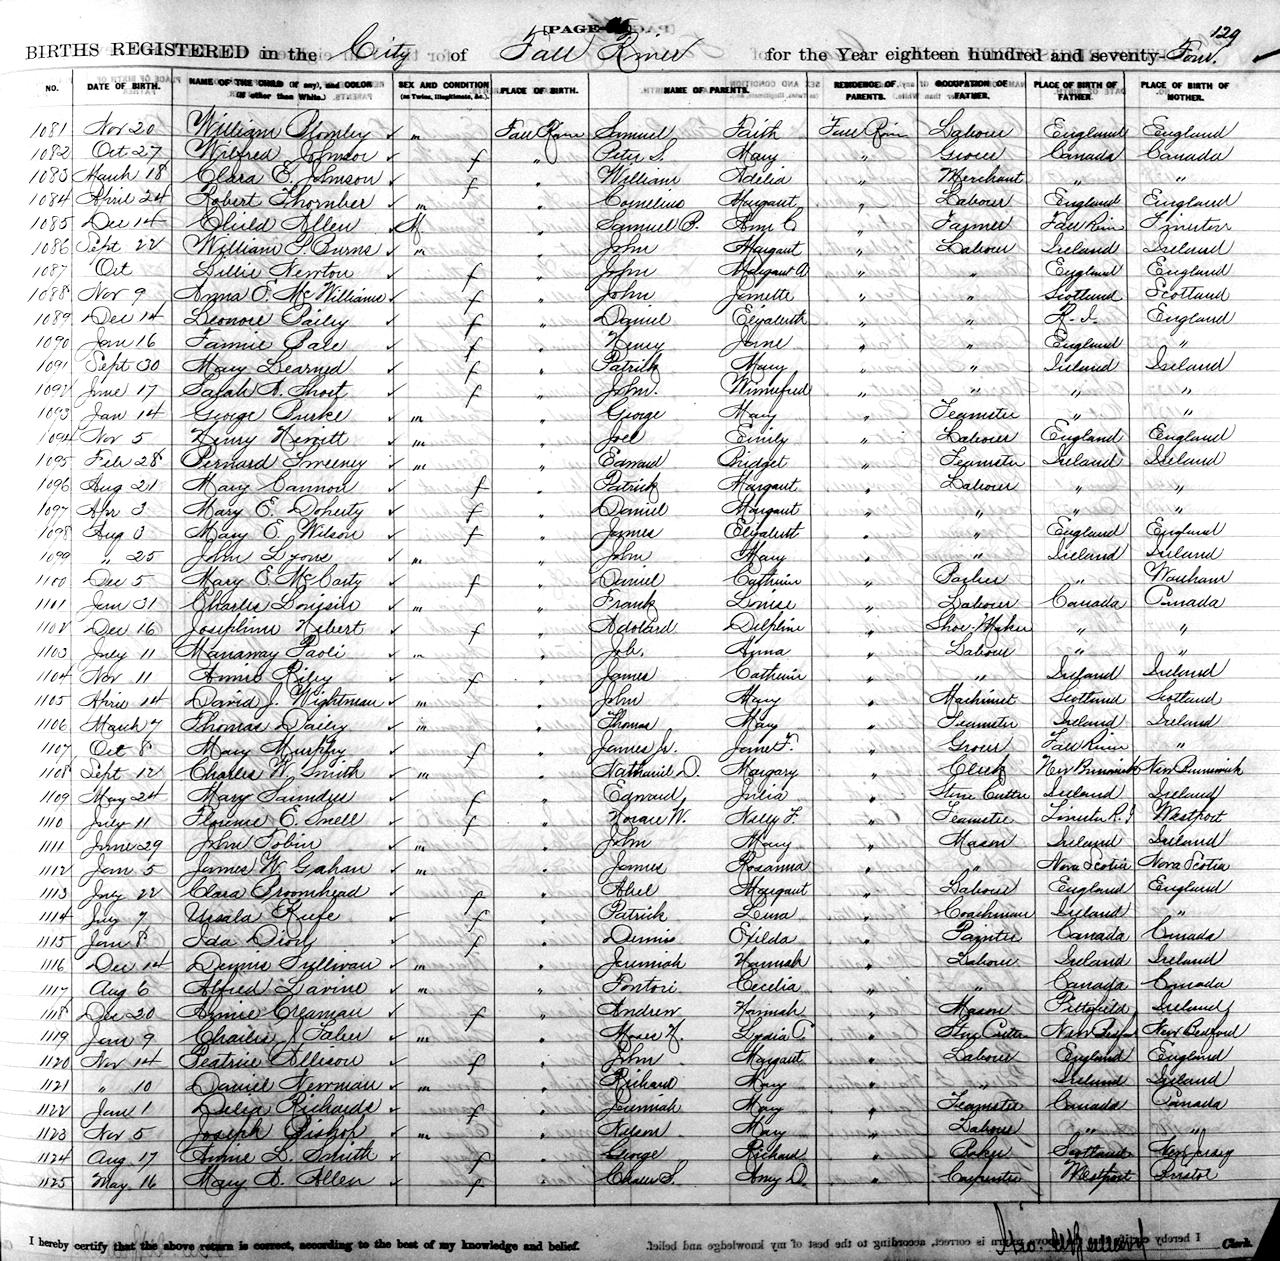 129
BIRTHS REGISTERED in the City of Fall River for the Year eighteen hundred and seventy-Four.
NO. DATE OF BIRTH. NAME OF THE CHILD (if any), and COLOR (if other than White.) SEX AND CONDITION (as Twins, Illegitimate, &c.) PLACE OF BIRTH. NAME OF PARENTS. RESIDENCE OF PARENTS. OCCUPATION OF FATHER. PLACE OF BIRTH OF FATHER. PLACE OF BIRTH OF MOTHER.
1081 Nov 20 William Plomley ✓ m Fall River Samuel Faith Fall River Labourer England England
1082 Oct 27 Wilfred Johnson ✓ f " Peter S. Mary " Grocer Canada Canada
1083 March 18 Clara E. Johnson ✓ f " William Adelia " Merchant " "
1084 April 24 Robert Thornber ✓ m " Cornelius Margaret " Labourer England England
1085 Dec 14 Child Allen M " Samuel P. Ann C. " Farmer Fall River
1086 Sept 22 William P. Burns ✓ m " John Margaret " Labourer Ireland Ireland
1087 Oct Lillie Newton f " John Margaret A " " England England
1088 Nov 9 Anna E. McWilliams ✓ f " John Jennette " " Scotland Scotland
1089 Dec 14 Leonore Bailey ✓ f " Daniel Elizabeth " " R. I. England
1090 Jan 16 Fannie Cale ✓ f " Henry Jane " " England "
1091 Sept 30 Mary Learned ✓ f " Patrick Mary " " Ireland Ireland
1092 June 17 Sarah A. Short ✓ f " John Winnefred " " " "
1093 Jan 14 George Burke ✓ m " George Mary " Teamster " "
1094 Nov 5 Henry Hewitt ✓ m " Joel Emily " Labourer England England
1095 Feb 28 Bernard Sweeney ✓ m " Edward Bridget " Teamster Ireland Ireland
1096 Aug 21 Mary Cannon ✓ f " Patrick Margaret " Labourer " "
1097 Apr 3 Mary E. Doherty ✓ f " Daniel Margaret " " " "
1098 Aug 3 Mary E. Wilson ✓ f " James Elizabeth " " England England
1099 " 25 John Lyons ✓ m " John Mary " " Ireland Ireland
1100 Dec 5 Mary E. McCarty ✓ f " Daniel Catherine " " Wareham
1101 Jan 31 Charles ✓ m " Frank Louise " Labourer Canada Canada
1102 Dec 16 Josephine Hebert ✓ f " Adolard Delphine " Shoe-Maker " "
1103 July 11 Manaway Paoli ✓ m " Job. Anna " Labourer " "
1104 Nov 11 Annie Riley ✓ f " James Catherine " " Ireland Ireland
1105 April 14 David J. Wightman ✓ m " John Mary " Machinist Scotland Scotland
1106 March 7 Thomas Dailey ✓ m " Thomas Mary " Teamster Ireland Ireland
1107 Oct 8 Mary Murphy ✓ f " James Jr. Jane F. " Grocer Fall River "
1108 Sept 12 Charles W. Smith ✓ m " Nathaniel D. Margary " Clerk New Brunswick New Brunswick
1109 May 24 Mary Saunders ✓ f " Edward Julia " Stone Cutter Ireland Ireland
1110 July 11 Florence E. Snell ✓ f " Horace W. Nelly F. " Teamster R. I. Westport
1111 June 29 John Tobin ✓ m " John Mary " Mason Ireland Ireland
1112 Jan 5 James W. Gahan ✓ m " James Rosanna " " Nova Scotia Nova Scotia
1113 July 22 Clara Broomhead ✓ f " Abel Margaret " Labourer England England
1114 July 7 Ursala Keefe ✓ f " Patrick Lena " Coachman Ireland "
1115 Jan 8 Ida Dion ✓ f " Dennis Exilda " Painter Canada Canada
1116 Dec 14 Dennis Sullivan ✓ m " Jeremiah Hannah " Labourer Ireland Ireland
1117 Aug 6 Alfred Lavine ✓ m " Cecelia " " Canada Canada
1118 Dec 20 Annie Creaman ✓ f " Andrew Hannah " Mason Pittsfield Ireland
1119 Jan 9 Charles Taber ✓ m " Moses H. Lydia C. " Stone Cutter New Bedford
1120 Nov 14 Beatrice Allison ✓ f " John Margaret " Labourer England England
1121 " 10 Daniel Newman ✓ m " Richard Mary " " Ireland Ireland
1122 Jan 1 Delia Richards ✓ f " Jeremiah Mary " Teamster Canada Canada
1123 Nov 5 Joseph Bishop ✓ m " Nelson Mary " Labourer " "
1124 Aug 17 Annie L. Smith ✓ f " George Richard " Baker Scotland New Jersey
1125 May 16 Mary A. Allen ✓ f " Amy D. " Carpenter Westport Bristol
I hereby certify that the above return is correct, according to the best of my knowledge and belief. Clerk.